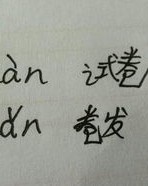 àn 试卷
ǎn 卷发